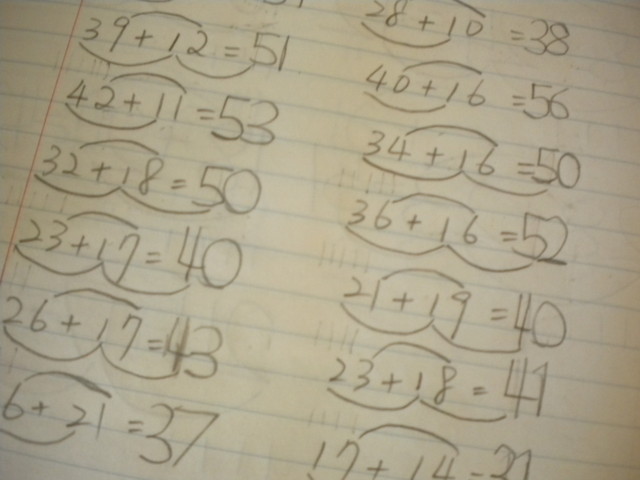 39+12=51
42+11=53
32+18=50
23+17=40
26+17=43
6+21=37
28+10=38
40+16=56
34+16=50
36+16=52
21+19=40
23+18=41
17+14=31